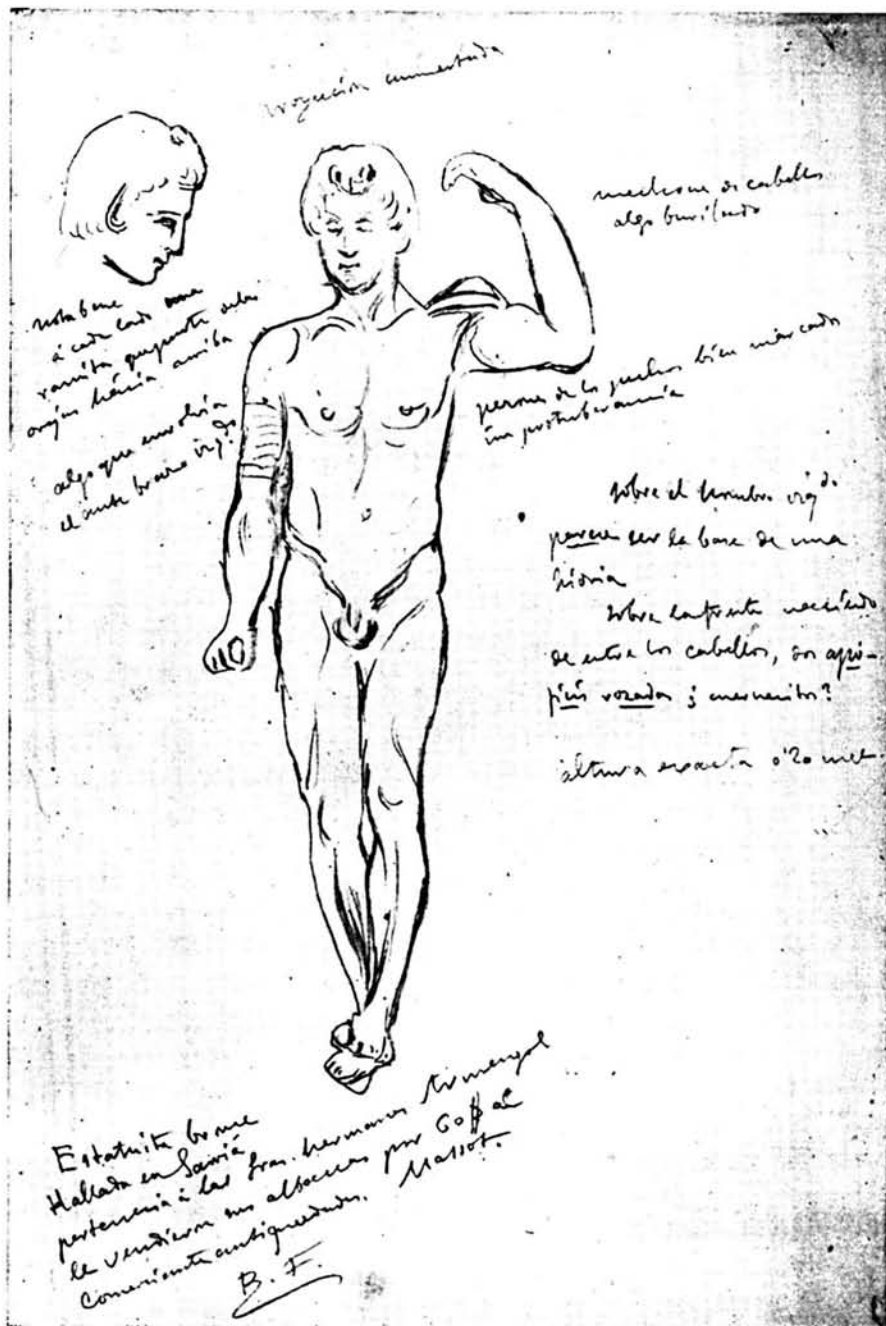 mechones de cabellos
algo burilado
nota bene
á cada lado una
ramita
orejas hácia arriba
algo que envolvia
el ante brazo izqdo
bien marcado
sin protuberancia
sobre el hombro izqdo
parece ser la base de una
hidria
sobre la frente naciendo
de entre los cabellos, dos
rozadas ¿ cuernecitos?
altura exacta 0'20
Estatuita bronce
Hallada en Sarriá
pertenecia á las Sras. hermanas Armengol
le vendieron sus albaceas por 60 $ al
comerciante antiguedades. Massot.
B. F.